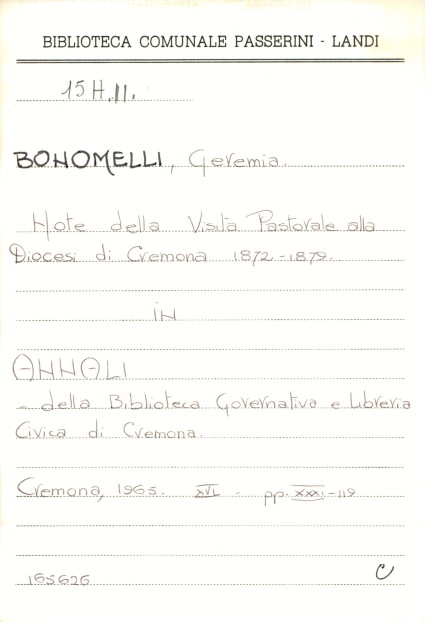 BIBLIOTECA COMUNALE PASSERINI - LANDI
15 H.II.
BONOMELLI, Geremia.
Note della Visita Pastorale alla
Diocesi di Cremona 1872-1879.
in
ANNALI
- della Biblioteca Governativa e Libreria
Civica di Cremona.
Cremona, 1965. XVI - pp. XXXI-119
165626 C